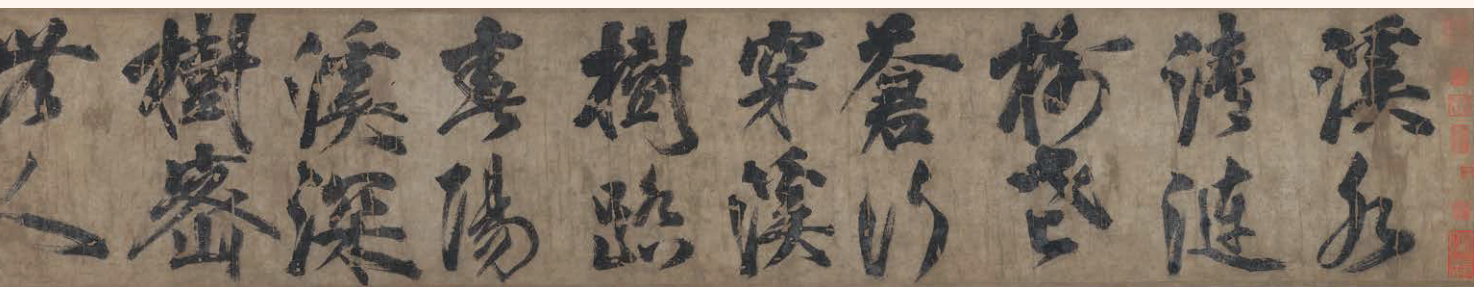 溪水
清漣
樹老
蒼行
穿溪
樹踏
春陽
溪深
樹密
無人